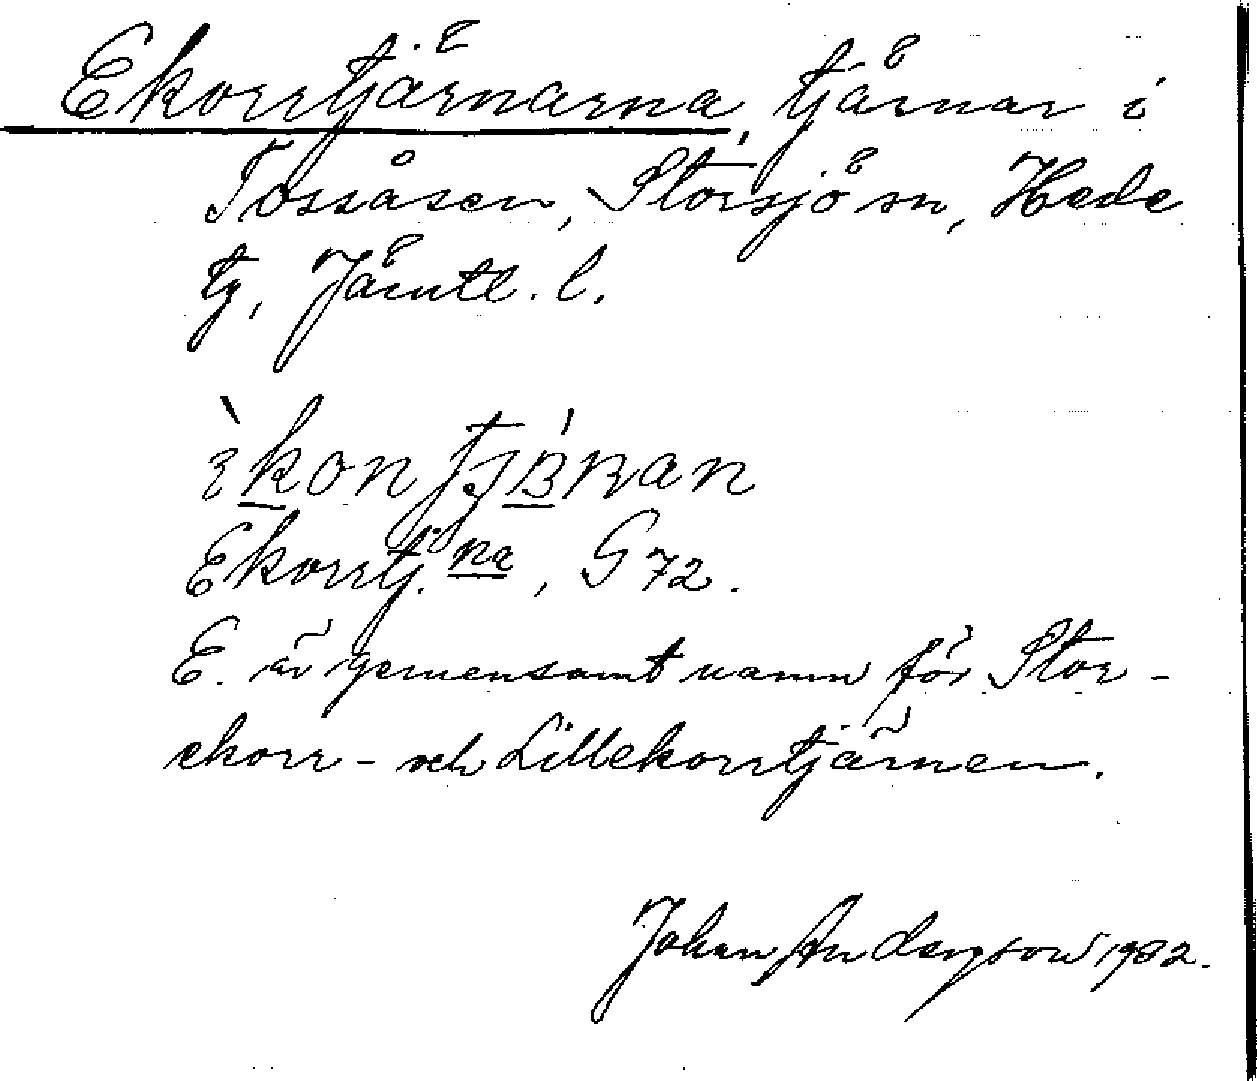 Ekorrtjärnarna, tjärnar i
Tossåsen, Storsjö sn, Hede
tg, Jämtl. l.
Ekorrtj. na, G 72.
E. är gemensamt namn för Stor-
ekorr- och Lillekorrtjärnen.
Johan Andersson 1932.